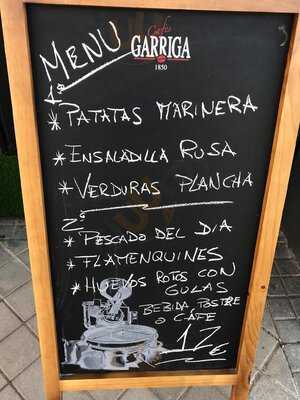 MENU
Cafés
GARRIGA
1850
1º
* PATATAS MARINERA
* ENSALADILLA RUSA
* VERDURAS PLANCHA
2º
* PESCADO DEL DIA
* FLAMENQUINES
* HUEVOS ROTOS CON
GULAS
BEBIDA POSTRE
O CAFE
12€